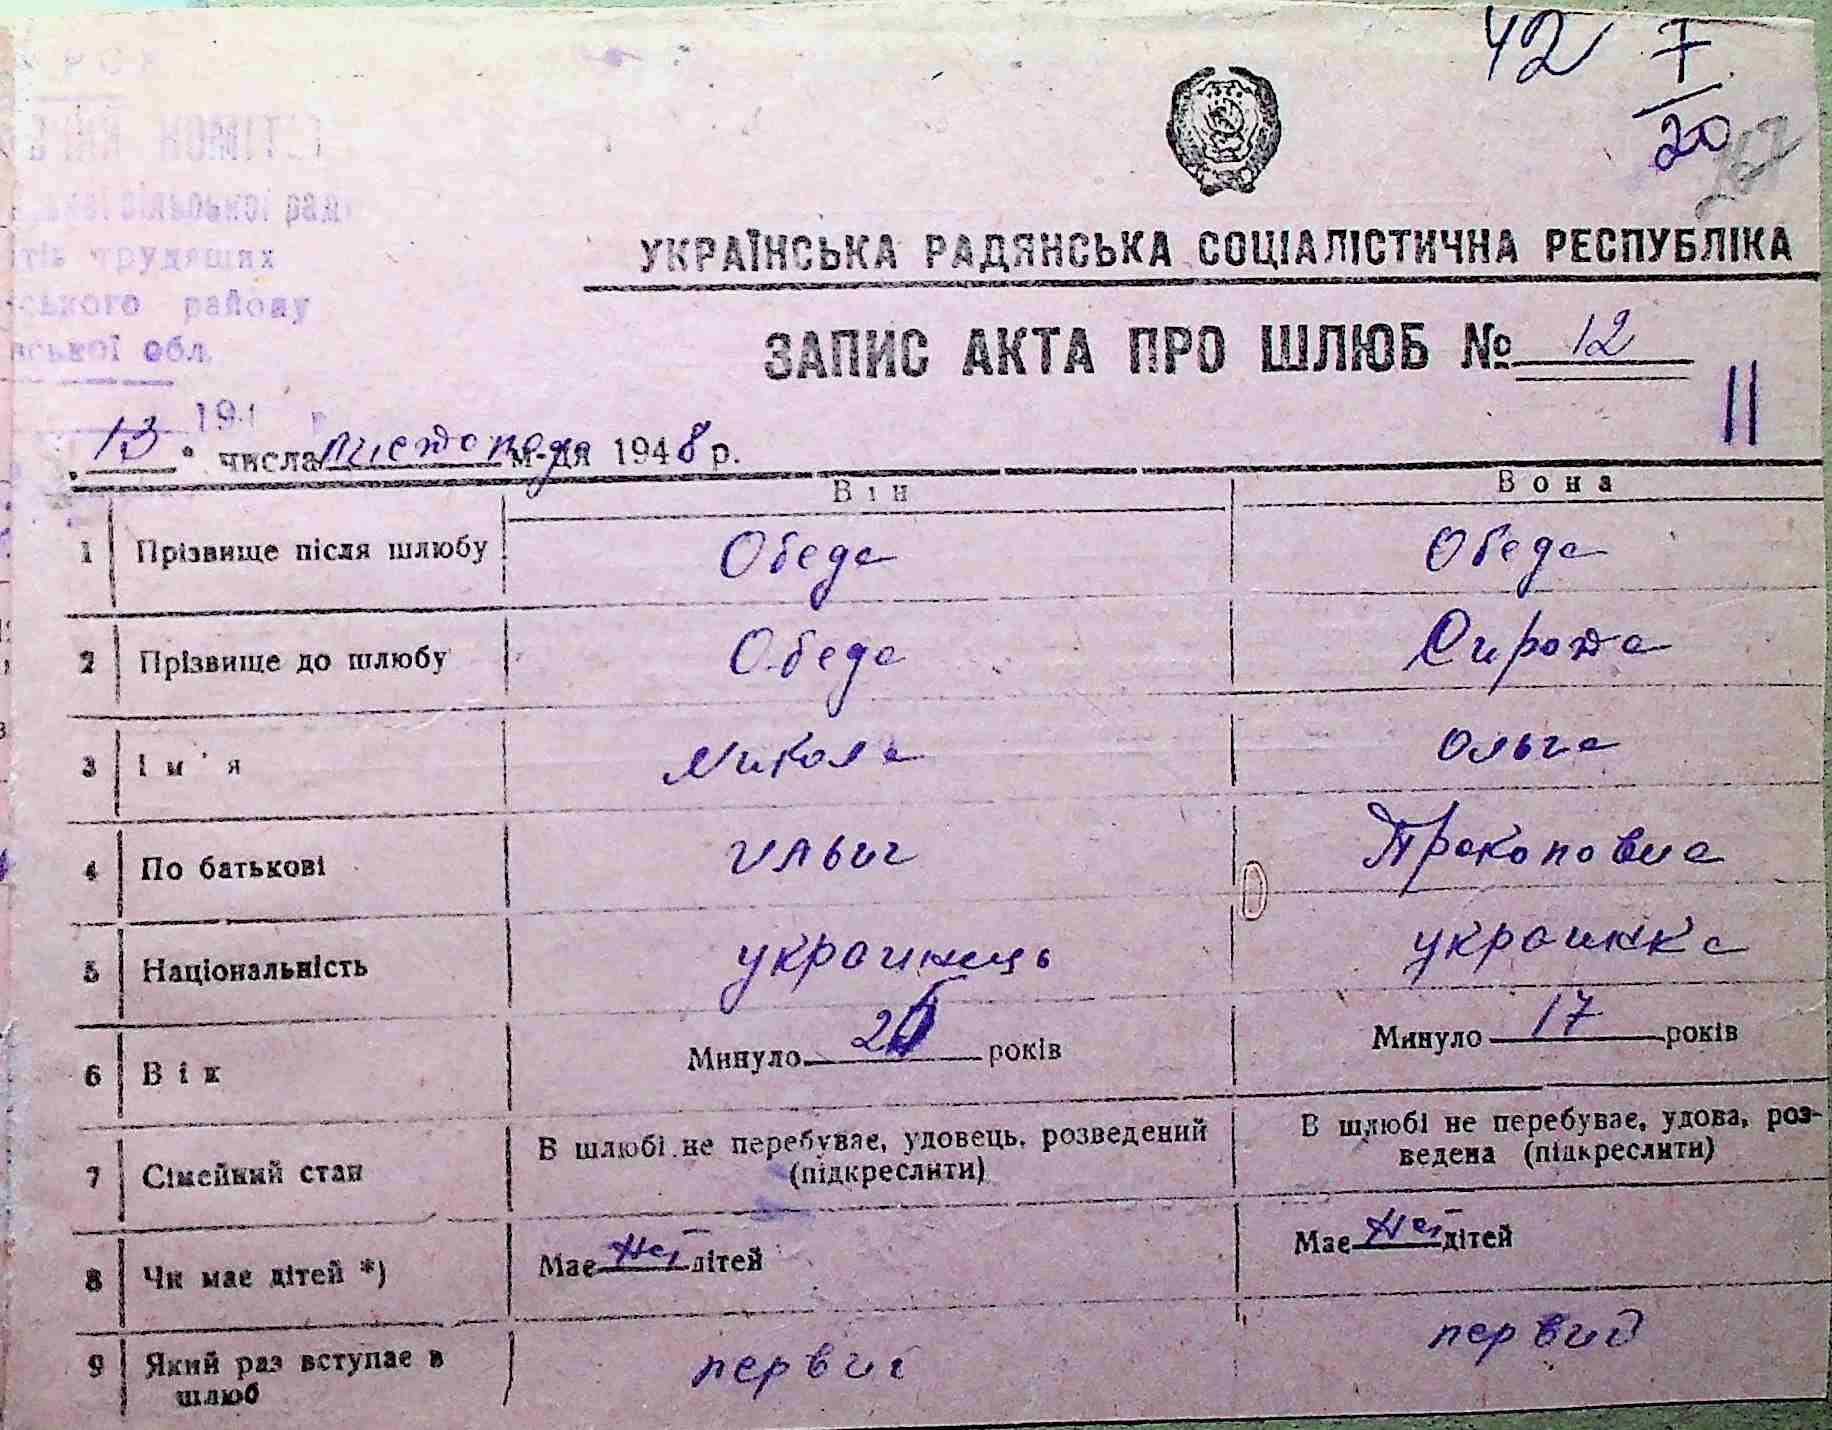 42 7
20
КОМІТЕТ
сільської ради
трудящих
ського району
ської обл.
194 р.
УКРАЇНСЬКА РАДЯНСЬКА СОЦІАЛІСТИЧНА РЕСПУБЛІКА
ЗАПИС АКТА ПРО ШЛЮБ № 12
11
„13" числа листопада м-ця 1948 р.
Він Вона
1 Прізвище після шлюбу Обеда Обеда
2 Прізвище до шлюбу Обеда Сирота
3 Ім'я Микола Ольга
4 По батькові ильич Прокоповна
5 Національність украинець украинка
6 Вік Минуло років Минуло 17 років
7 Сімейний стан В шлюбі не перебуває, удовець, розведений (підкреслити) В шлюбі не перебуває, удова, розведена (підкреслити)
8 Чи має дітей *) Має дітей Має дітей
9 Який раз вступає в шлюб первий первий